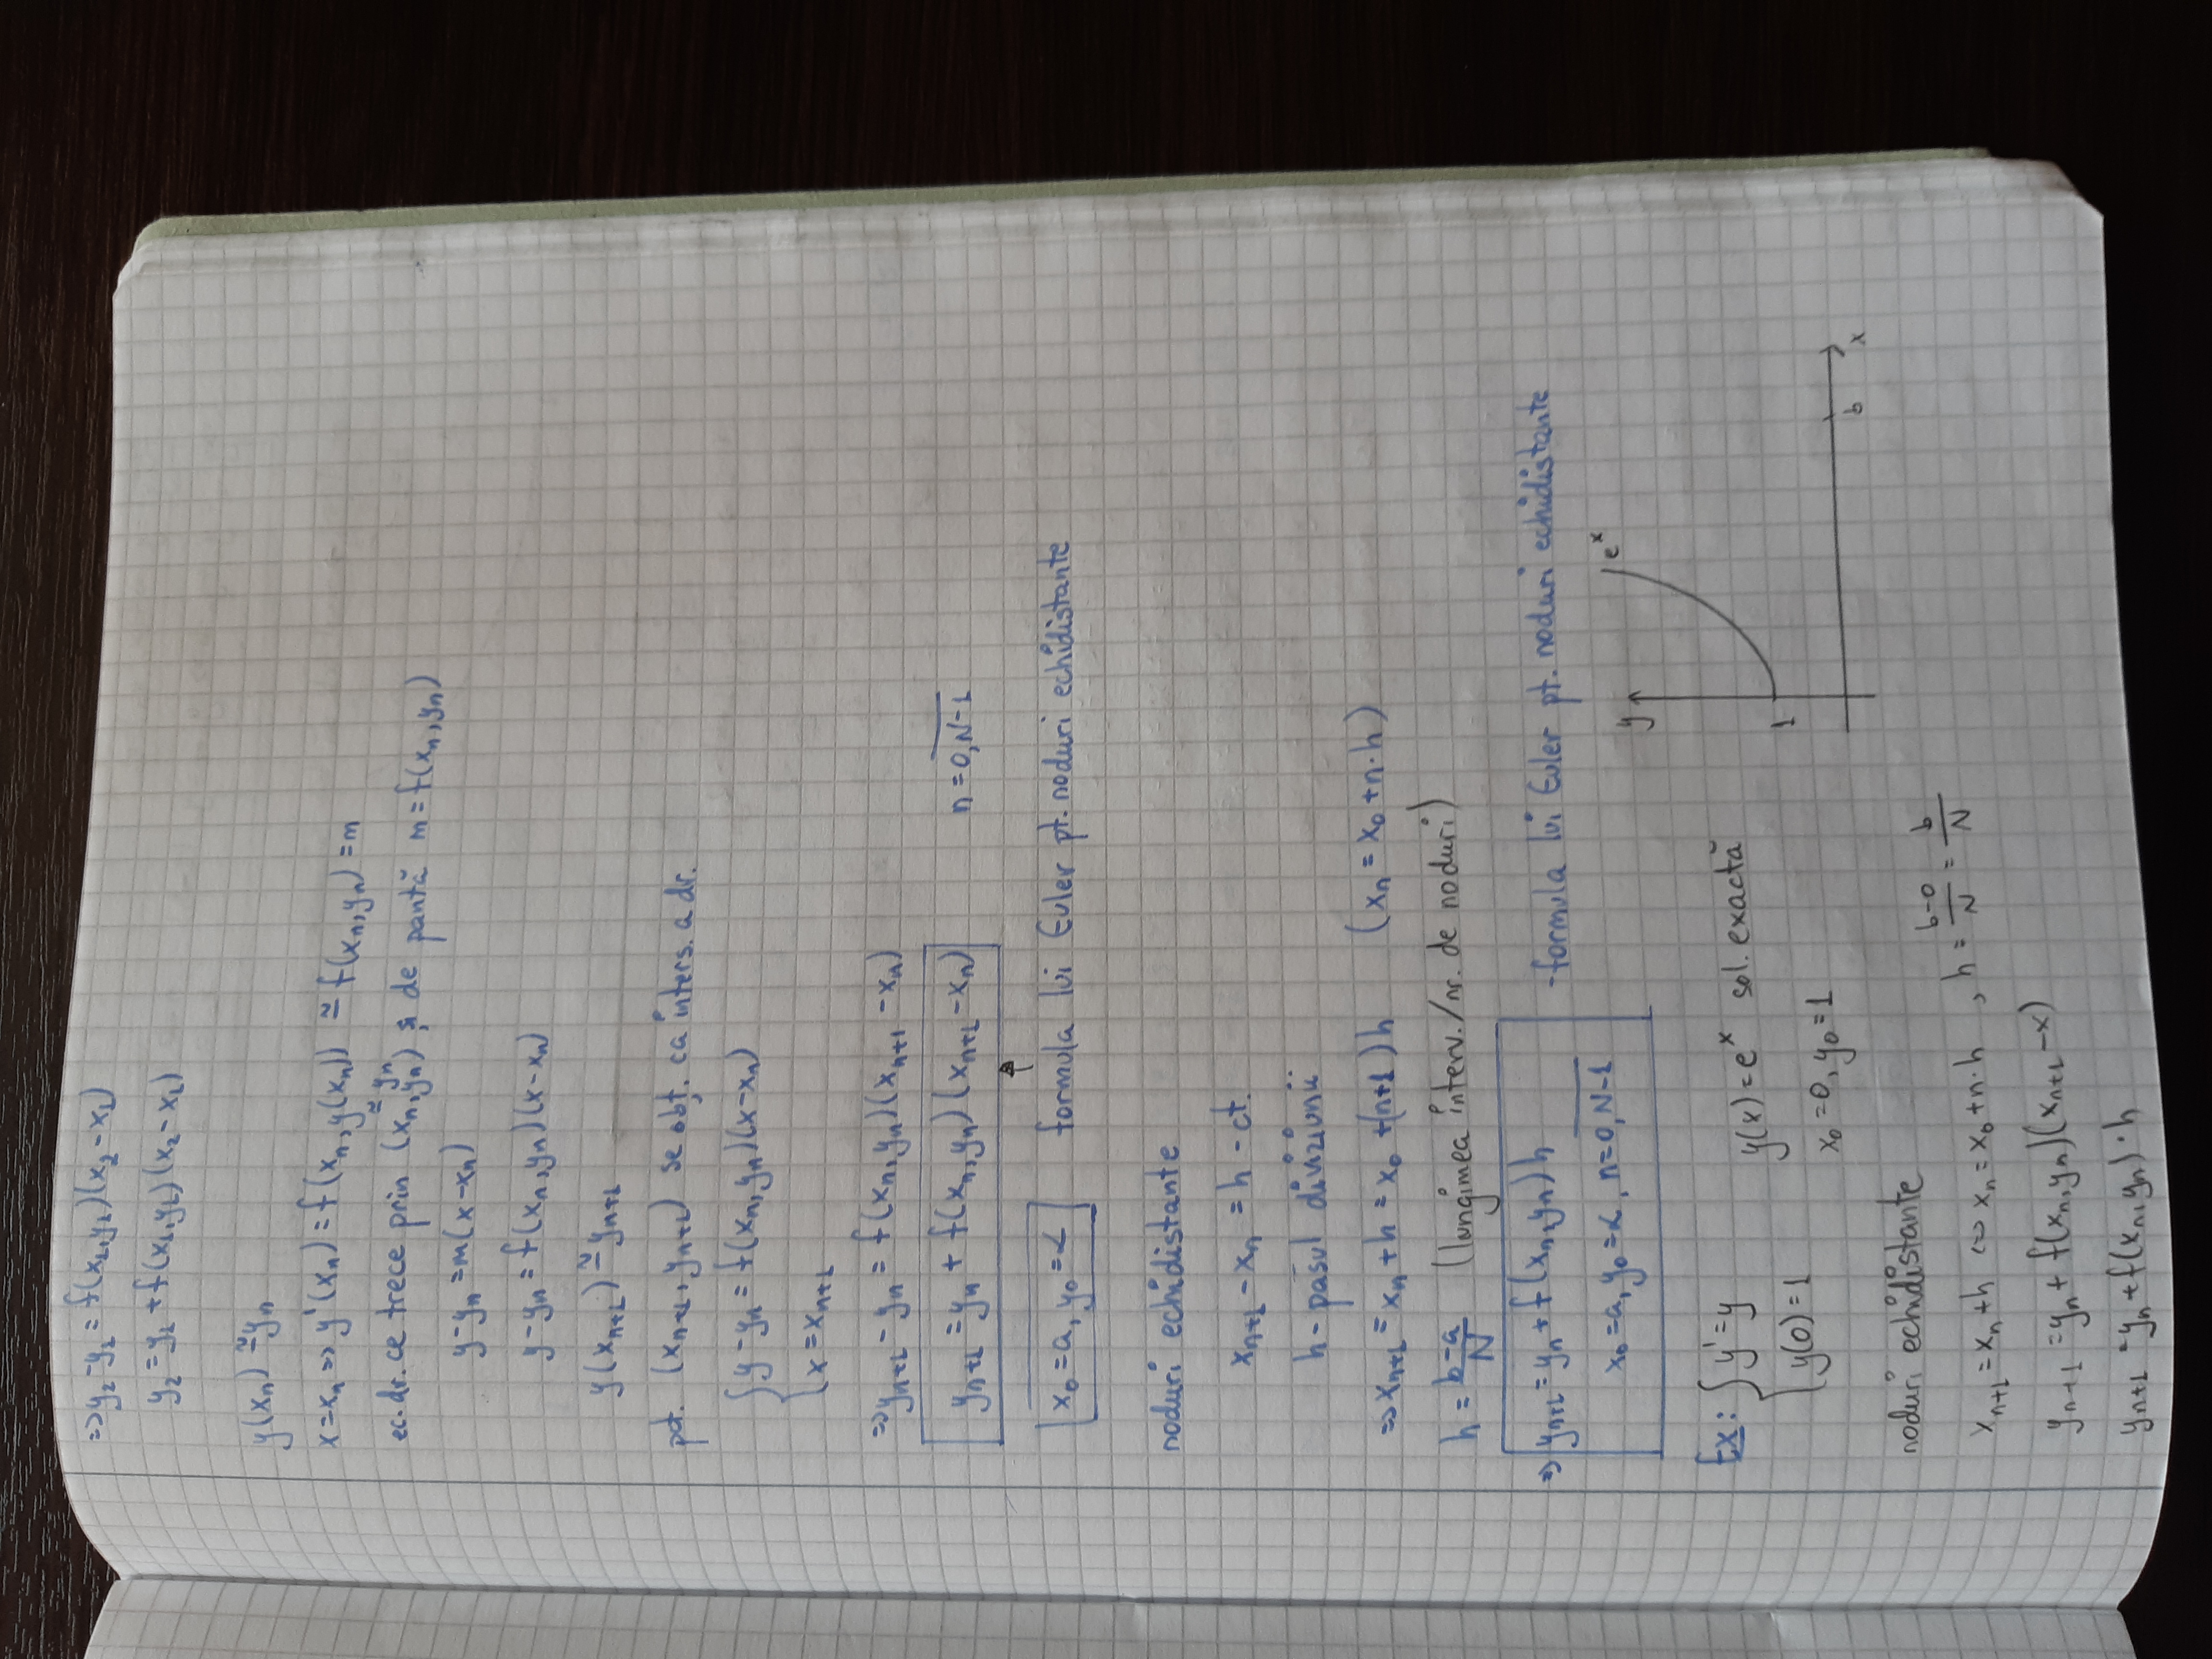 => y₂ - y₁ = f(x₁, y₁)(x₂ - x₁)
y₂ = y₁ + f(x₁, y₁)(x₂ - x₁)
y(xₙ) ≅ yₙ
x = xₙ => y'(xₙ) = f(xₙ, y(xₙ)) ≅ f(xₙ, yₙ) = m
≅ yₙ
ec. dr. ce trece prin (xₙ, yₙ) și de pantă m = f(xₙ, yₙ)
y - yₙ = m(x - xₙ)
y - yₙ = f(xₙ, yₙ)(x - xₙ)
y(xₙ₊₁) ≅ yₙ₊₁
pct. (xₙ₊₁, yₙ₊₁) se obț. ca inters. a dr.
{ y - yₙ = f(xₙ, yₙ)(x - xₙ)
x = xₙ₊₁
=> yₙ₊₁ - yₙ = f(xₙ, yₙ)(xₙ₊₁ - xₙ)
yₙ₊₁ = yₙ + f(xₙ, yₙ)(xₙ₊₁ - xₙ) n = 0, N-1
x₀ = a, y₀ = α formula lui Euler pt. noduri echidistante
noduri echidistante
xₙ₊₁ - xₙ = h - ct.
h - pasul diviziunii
=> xₙ₊₁ = xₙ + h = x₀ + (n+1)h (xₙ = x₀ + n·h)
h = (b-a)/N (lungimea interv./nr. de noduri)
=> yₙ₊₁ = yₙ + f(xₙ, yₙ)h - formula lui Euler pt. noduri echidistante
x₀ = a, y₀ = α, n = 0, N-1
y eˣ
1
b x
Ex: { y' = y y(x) = eˣ sol. exactă
y(0) = 1 x₀ = 0, y₀ = 1
noduri echidistante
xₙ₊₁ = xₙ + h <=> xₙ = x₀ + n·h , h = (b-0)/N = b/N
yₙ₊₁ = yₙ + f(xₙ, yₙ)(xₙ₊₁ - x)
yₙ₊₁ = yₙ + f(xₙ, yₙ)·h